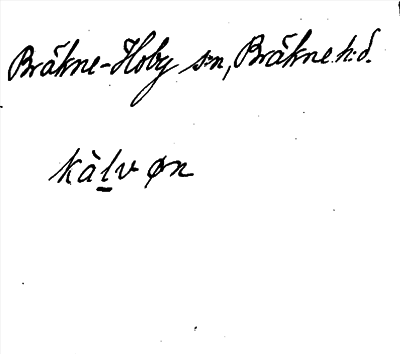 Bräkne-Hoby s:n, Bräkne h:d.
kàl̲v øn